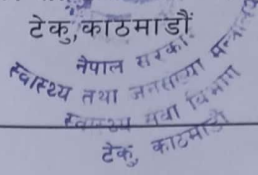 टेकु,काठमाडौं
नेपाल सरकार
स्वास्थ्य तथा जनसंख्या मन्त्रालय
स्वास्थ्य सेवा विभाग
टेकु, काठमाडौं